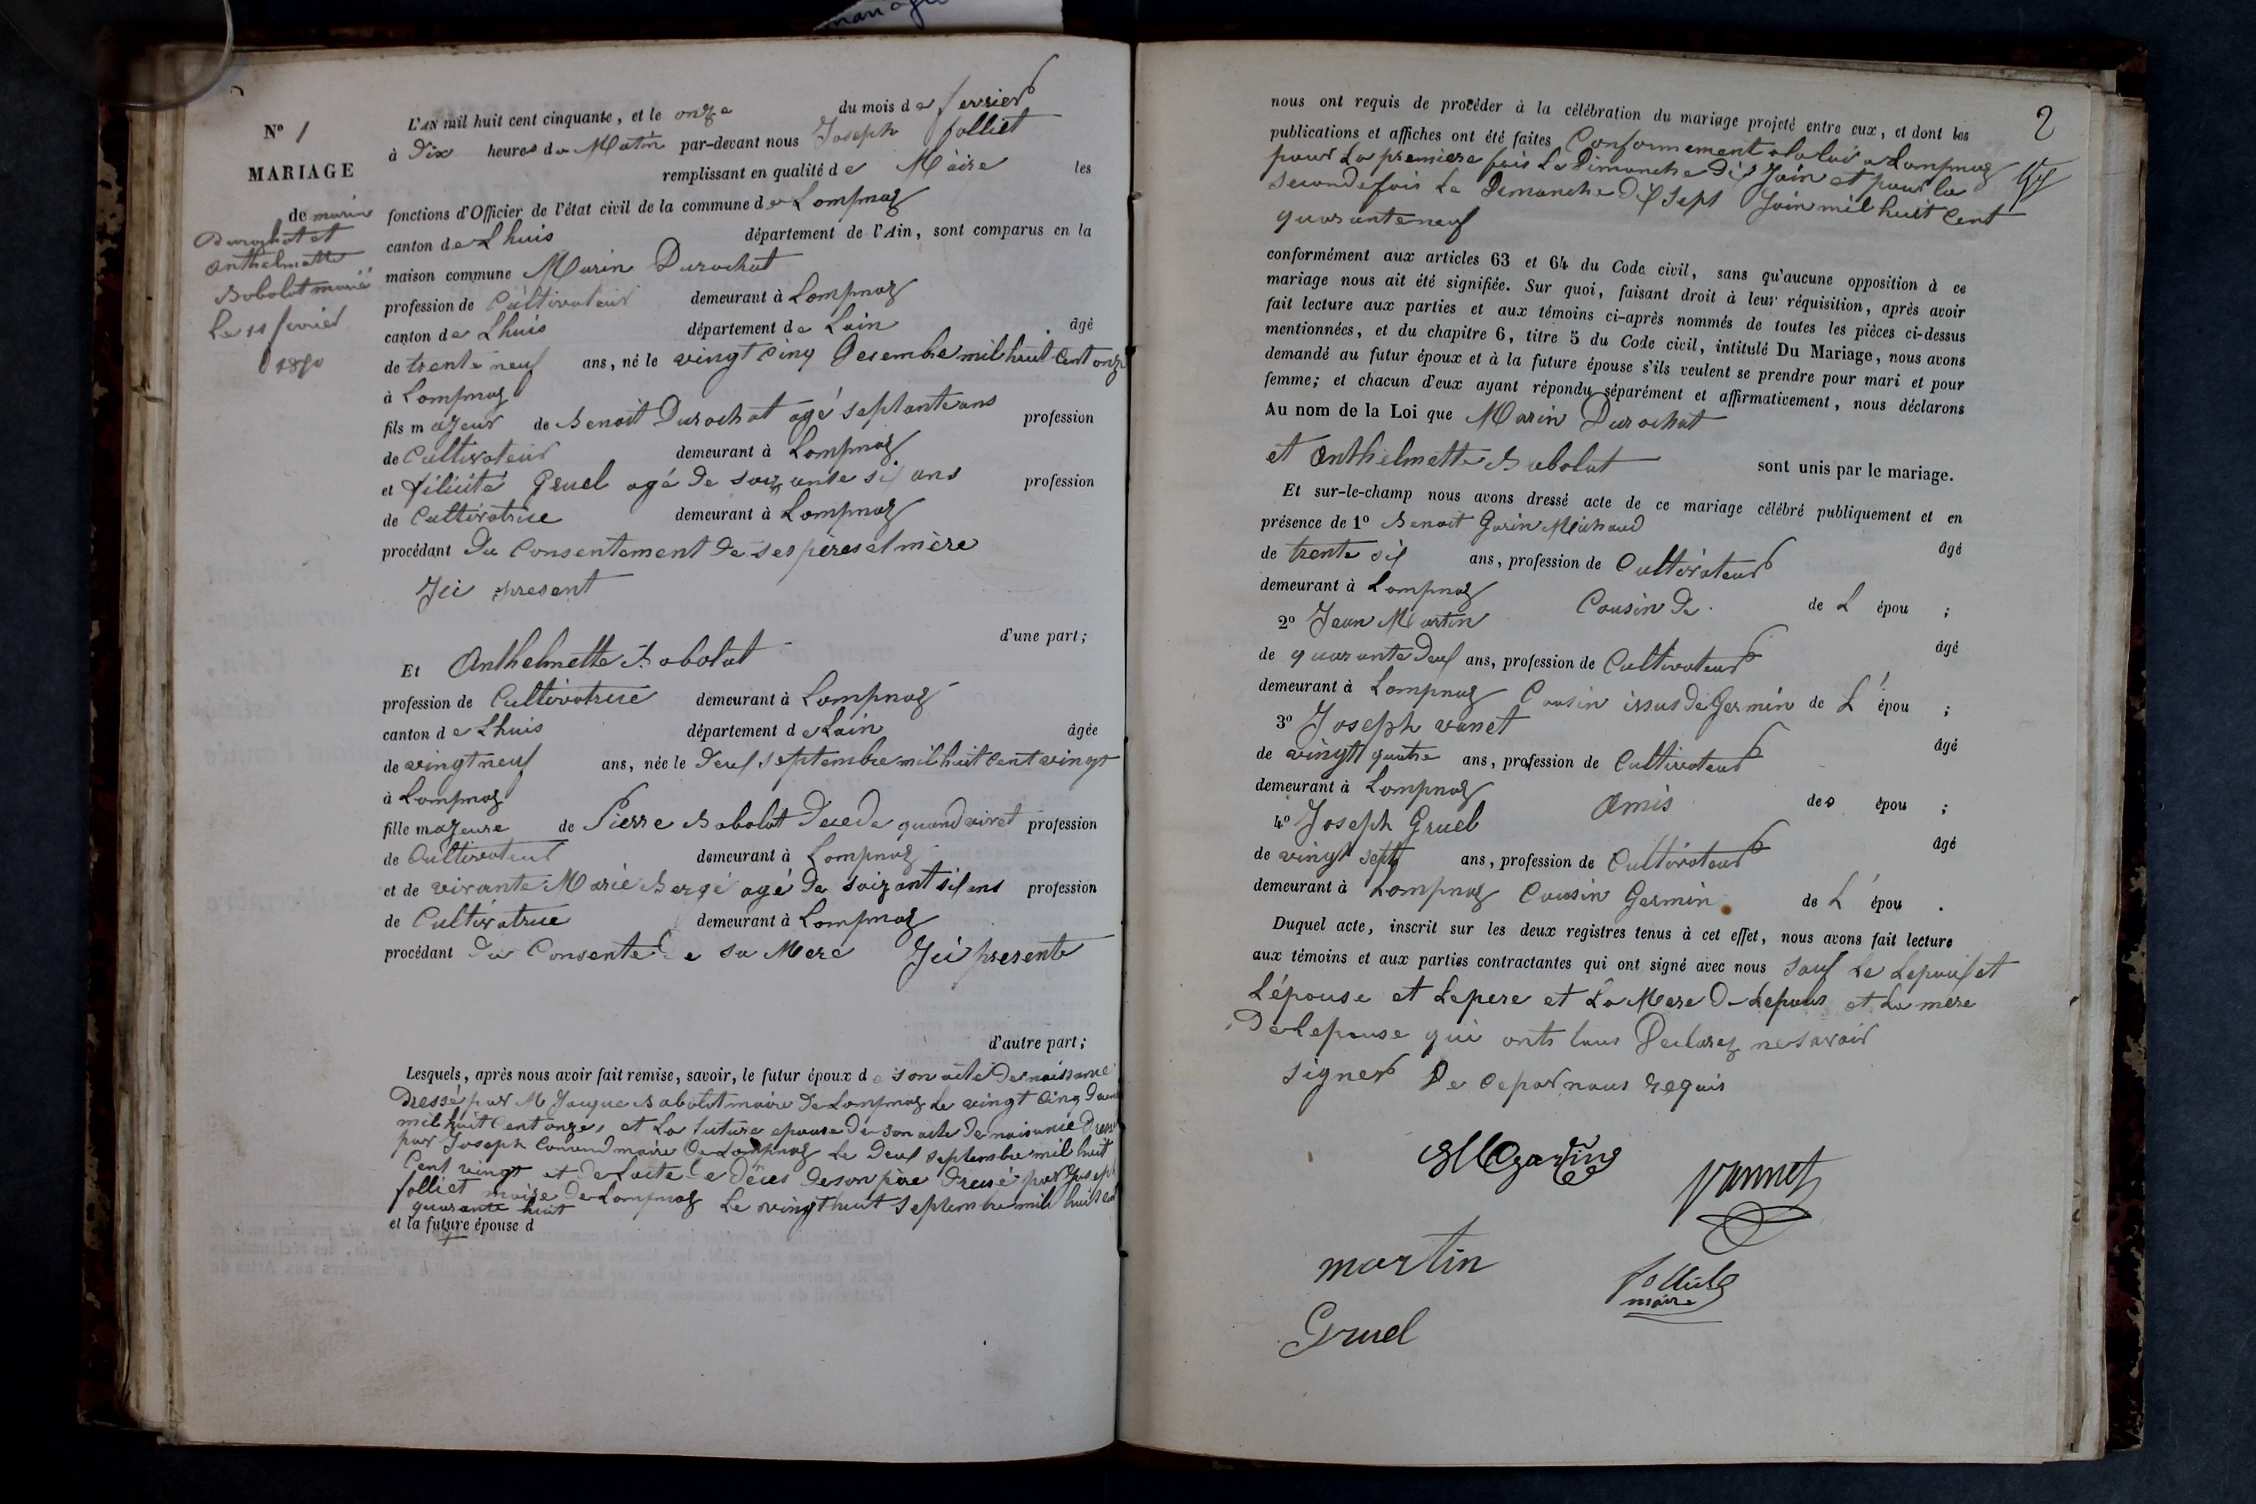 N° 1
MARIAGE
de marin
Durochat et
anthelmette
Babolat marié
Le 11 fevrier
1850
L'AN mil huit cent cinquante, et le onze du mois de fevrier
à Dix heures du Matin par-devant nous Joseph folliet
remplissant en qualité de Maire les
fonctions d'Officier de l'état civil de la commune de Lompnaz
canton de Lhuis département de l'Ain, sont comparus en la
maison commune Marin Durochat
profession de Cultivateur demeurant à Lompnaz
canton de Lhuis département de Lain âgé
de trente neuf ans, né le vingt cinq Decembre mil huit Cent onze
à Lompnaz
fils majeur de Benoit Durochat agé septante ans profession
de Cultivateur demeurant à Lompnaz
et félicité Gruel agé de soixante six ans profession
de Cultivatrice demeurant à Lompnaz
procédant Du Consentement de ses pères et mère
Jci present
d'une part;
Et Anthelmette Babolat
profession de Cultivatrice demeurant à Lompnaz
canton de Lhuis département de Lain âgée
de vingt neuf ans, née le Deux septembre mil huit cent vingt
à Lompnaz
fille majeure de Pierre Babolat Decede quand vivet profession
de Cultivateur demeurant à Lompnaz
et de vivante Marie Bergé agé de soixant six ans profession
de Cultivatrice demeurant à Lompnaz
procédant Du Consente De sa Mere Jci presente
d'autre part;
Lesquels, après nous avoir fait remise, savoir, le futur époux de son acte De naissance
Dressé par M Jaque Babolat maire De Lompnaz Le vingt Cinq
mil huit Cent onze, et La future epouse De son acte De naisance Dressé
par Joseph maire De Lompnaz Le Deux septembre mil huit
Cent vingt et De Lacte De Déces De son père Dressé par Josep
folliet maire De Lompnaz Le vingt huit septembre mil huit cent
quarante huit
et la future épouse d
2
nous ont requis de procéder à la célébration du mariage projeté entre eux, et dont les
publications et affiches ont été faites Conformement a la loi a Lompnaz
pour La premiere fois Le Dimanche Dix Join et pour la
seconde fois Le Dimanche Dix sept Join mil huit Cent
quarante neuf
conformément aux articles 63 et 64 du Code civil, sans qu'aucune opposition à ce
mariage nous ait été signifiée. Sur quoi, faisant droit à leur réquisition, après avoir
fait lecture aux parties et aux témoins ci-après nommés de toutes les pièces ci-dessus
mentionnées, et du chapitre 6, titre 5 du Code civil, intitulé Du Mariage, nous avons
demandé au futur époux et à la future épouse s'ils veulent se prendre pour mari et pour
femme; et chacun d'eux ayant répondu séparément et affirmativement, nous déclarons
Au nom de la Loi que Marin Durochat
et Anthelmette Babolat sont unis par le mariage.
Et sur-le-champ nous avons dressé acte de ce mariage célébré publiquement et en
présence de 1° Benoit Garin Michaud âgé
de trente six ans, profession de Cultivateur
demeurant à Lompnaz Cousin De de L épou ;
2° Jean Martin âgé
de quarante Deux ans, profession de Cultivateur
demeurant à Lompnaz Cousin issus De Germin de L' épou ;
3° Joseph vanet âgé
de vingt quatre ans, profession de Cultivateur
demeurant à Lompnaz Amis des épou ;
4° Joseph Gruel âgé
de vingt sept ans, profession de Cultivateur
demeurant à Lompnaz Cousin Germin de L' épou .
Duquel acte, inscrit sur les deux registres tenus à cet effet, nous avons fait lecture
aux témoins et aux parties contractantes qui ont signé avec nous Sauf Le Lepoux et
L'épouse et Lepere et La Mere De Lepous et La mère
De Lepouse qui onts tous Declarez ne savoir
signer De ce par nous requis
Vannet
martin
folliet
maire
Gruel